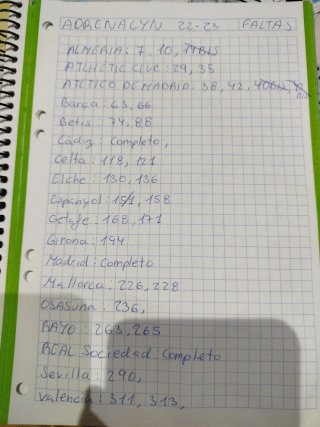 ADRENALYN 22-23 (FALTAS)
ALMERIA: 7, 10, 17BIS
ATLHETIC CLUB: 29, 35
ATLETICO DE MADRID: 38, 42,
Barça: 63, 66
Betis: 74, 88
Cádiz: Completo,
Celta: 118, 121
Elche: 130, 136
Espanyol: 151, 158
Getafe: 168, 171
Girona: 194
Madrid: Completo
Mallorca: 226, 228
OSASUNA: 236,
RAYO: 263, 265
REAL Sociedad: Completo
Sevilla: 290,
Valencia: 311, 313,